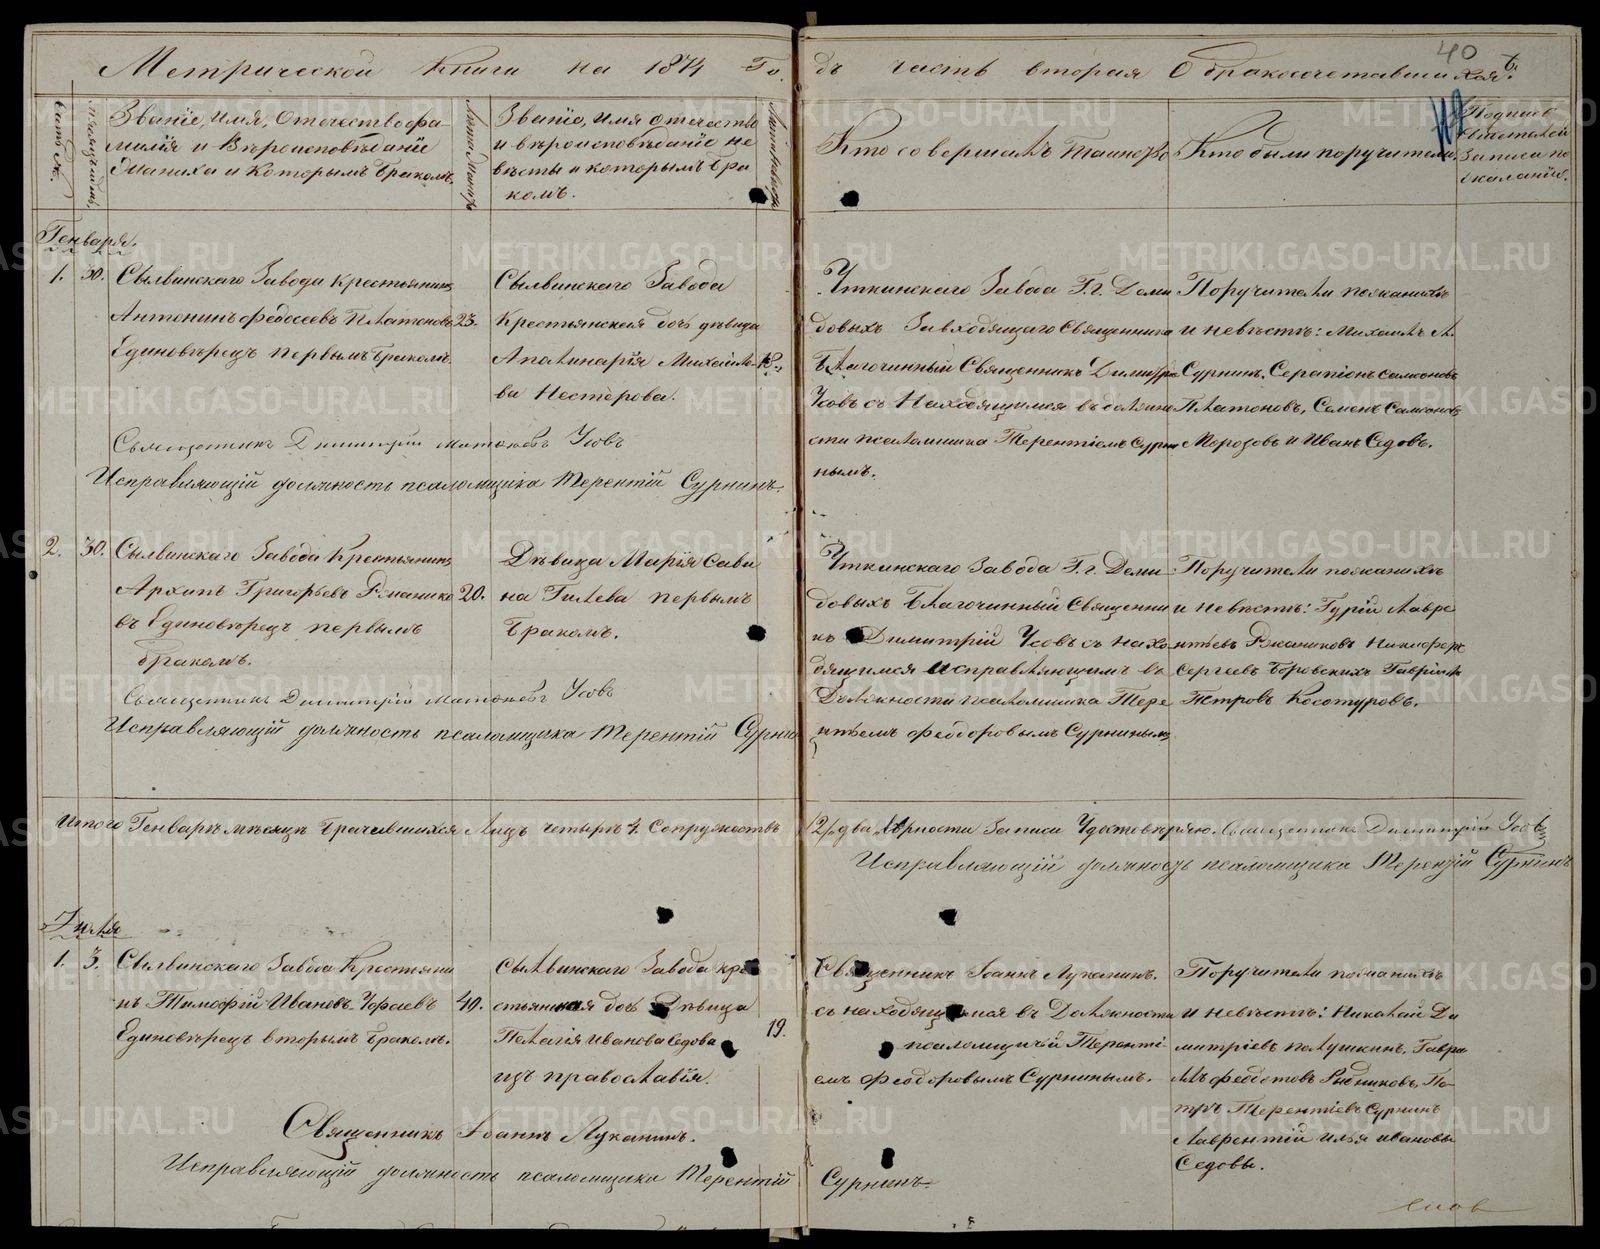 40
Метрической книги на 1874 Го дъ часть вторая О бракосочетавшихся.
Званіе, имя, отечество фа-
милія и Вѣроисповѣданіе
жениха и которымъ бракомъ.
Званіе, имя отечество
и вѣроисповѣданіе не
вѣсты и которымъ бра
комъ.
Кто совершалъ Таинство
Кто были поручители
Генваря.
1. 30. Сылвинскаго Завода Крестьянинъ
Антонинъ Федосеевъ Платоновъ 23.
Единовѣрецъ первымъ бракомъ.
Сылвинскаго Завода
Крестьянская дочь дѣвица
Аполинарія Михайло-
ва Нестерова.
18.
Уткинскаго Завода Г.г. Деми
довыхъ Завходящаго Священника
Благочинный Священникъ Димитрій
Усовъ съ Находящимся въ должно
сти псаломщика Терентіемъ Сурни
нымъ.
Поручители по женихѣ
и невѣстѣ: Михаилъ А.
Сурнинъ. Серапіонъ Самсоновъ
Платоновъ, Семенъ Самсоновъ
Морозовъ и Иванъ Седовъ.
Священникъ Димитрій Усовъ
Исправляющій должность псаломщика Терентій Сурнинъ.
2. 30. Сылвинскаго Завода Крестьянинъ
Архипъ Григорьевъ 20.
въ Единовѣрецъ первымъ
бракомъ.
Дѣвица Марія Сави
на Гилева первымъ
бракомъ.
Уткинскаго Завода Г.г. Деми
довыхъ Благочинный Священни
къ Димитрій Усовъ съ нахо
дящимся исправляющимъ въ
Должности псаломщика Тере
нтіемъ Феодоровымъ Сурнинымъ
Поручители по женихѣ
и невѣстѣ: Гурій Лавре
нтьевъ Никифоръ
Сергеевъ Боровскихъ Гавріилъ
Петровъ Косотуровъ.
Священникъ Димитрій Усовъ
Исправляющій должность псаломщика Терентій Сурнинъ
Итого Генварѣ мѣсяцѣ брачившихся Лицъ четыре 4. Супружествъ 2/два вѣрность записи Удостовѣряю. Священникъ Димитрій Усовъ
Исправляющій должность псаломщика Терентій Сурнинъ
Іюля
1. 3. Сылвинскаго Завода Крестьяни
нъ Тимофѣй Ивановъ 40.
Единовѣрецъ вторымъ бракомъ.
Сылвинскаго Завода кре
стьянская дочь Дѣвица
Пелагія Иванова Седова 19.
изъ православія.
Священникъ Іоаннъ Луканинъ.
съ находящимся въ Должности
псаломщичей Теренті-
емъ Феодоровымъ Сурнинымъ.
Поручители по женихѣ
и невѣстѣ: Николай Ди
митріевъ Полушкинъ, Гаври
лъ Федотовъ Рыбниковъ, Пе-
тръ Терентіевъ Сурнинъ
Лаврентій Илья Ивановы
Седовы.
Священникъ Іоаннъ Луканинъ.
Исправляющій должность псаломщика Терентій Сурнинъ.
METRIKI.GASO-URAL.RU